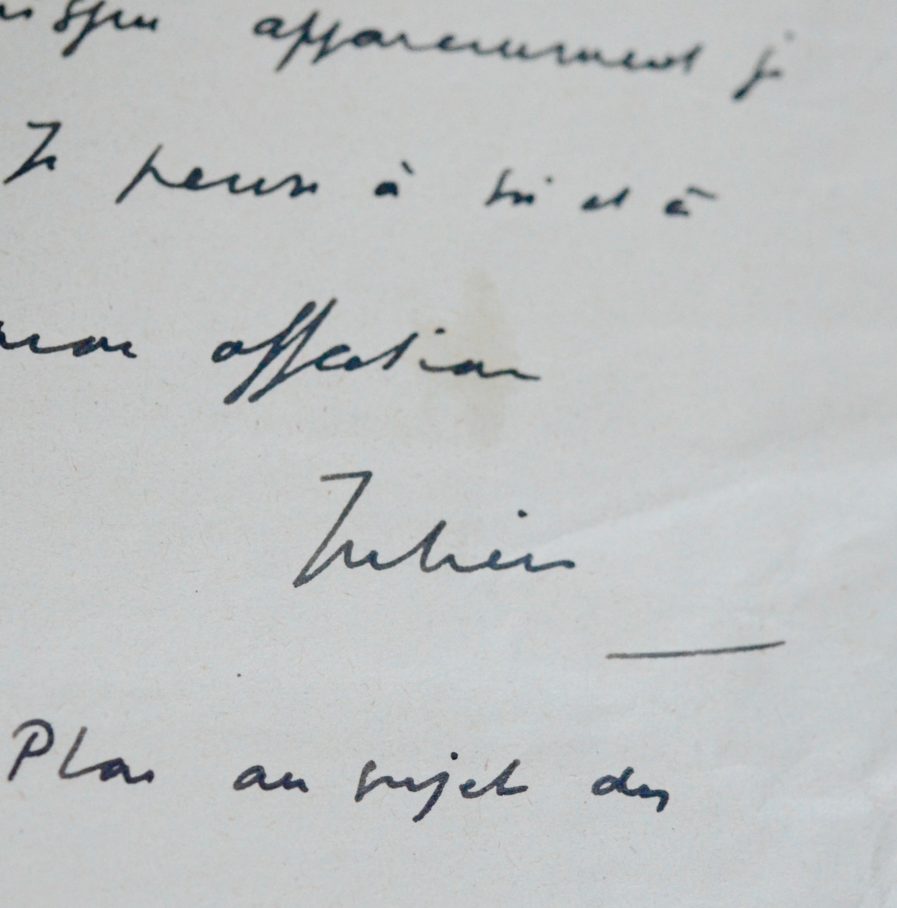 apparemment je
Je pense à toi et à
mon affection
Julien
Plon au sujet des